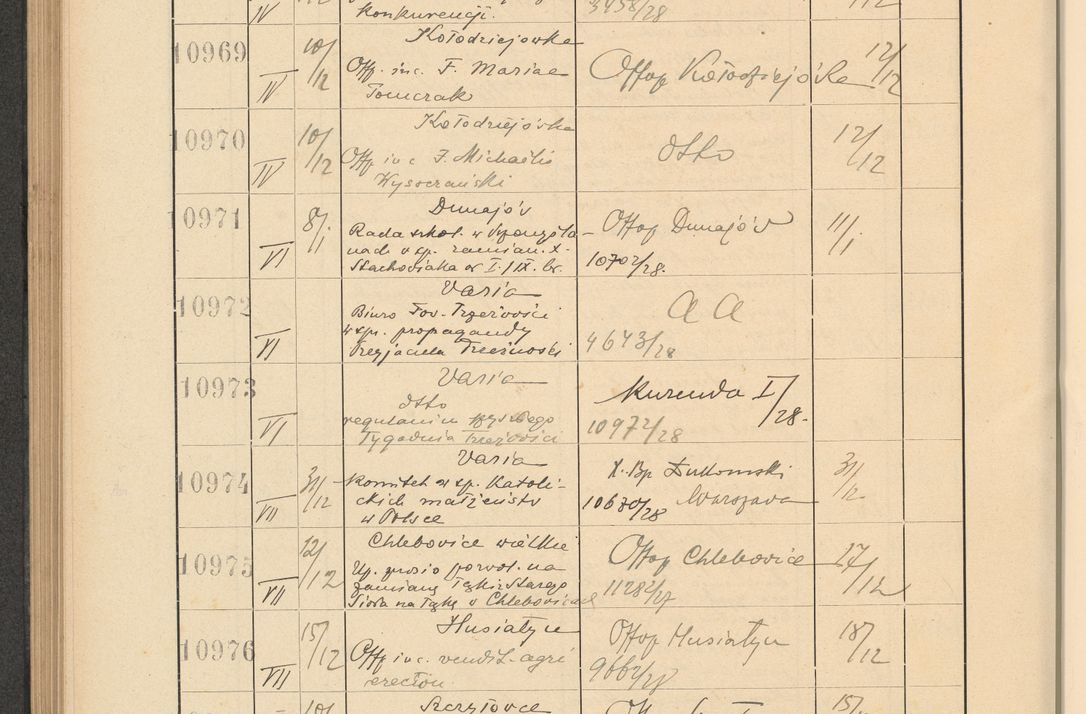 IV
konkurencji.
3458/28
12
10969
IV
10/12
Kołodziejówka
Off. inc. F. Mariae
Tomczak
Offop Kołodziejówka
12/12
10970
IV
10/12
Kołodziejówka
Off inc F. Michaelis
Wysoczański
dtto
12/12
10971
VI
8/1
Dunajów
Rada szkol. w
nad w sp. zamian. X.
Stachowiaka or I. / IX. br.
Offop Dunajów
10702/28.
11/1
10972
VI
Varia
Biuro Tow. Trzeźwości
w spr. propagandy
Przyjaciela Trzeźwości
a a
4643/28
10973
VI
Varia
dtto
regulamin
Tygodnia Trzeźwości
Kurenda I/28.
10972/28
10974
VII
3/12
Varia
Komitet w sp. Katoli-
ckich małżeństw
w Polsce
X. Bp Łukomski
10670/28 Warszawa
3/12
10975
VII
12/12
Chlebowice wielkie
Up. prosio pozwol. na
zamianę łąki Starego
Sioła na łąkę w Chlebowicach
Offop Chlebowice
11282/27
17/12
10976
VII
15/12
Husiatyn
Off inc. vendit. agri
erection.
Offop Husiatyn
9662/28
18/12
10/
15/